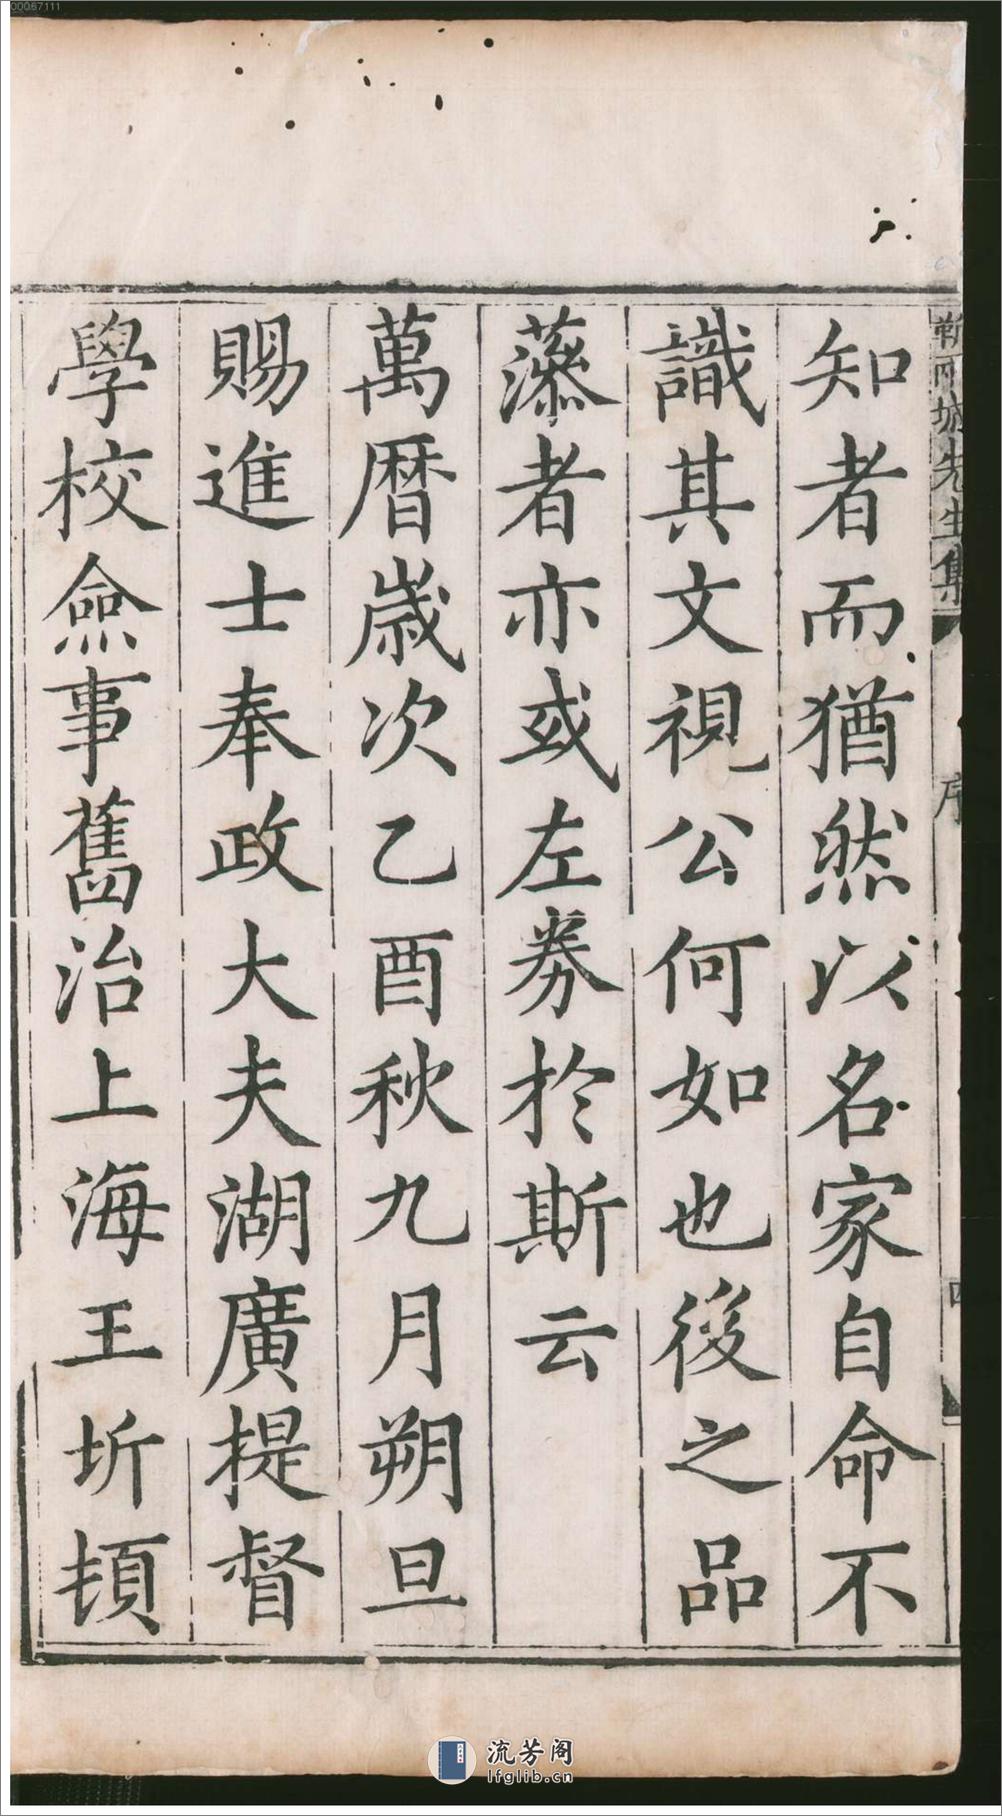 知者而猶然以名家自命不
識其文視公何如也後之品
藻者亦或左券於斯云
萬曆歲次乙酉秋九月朔旦
賜進士奉政大夫湖廣提督
學校僉事舊治上海王圻頓
先生集
序
00067111
流芳阁
lfglib.cn